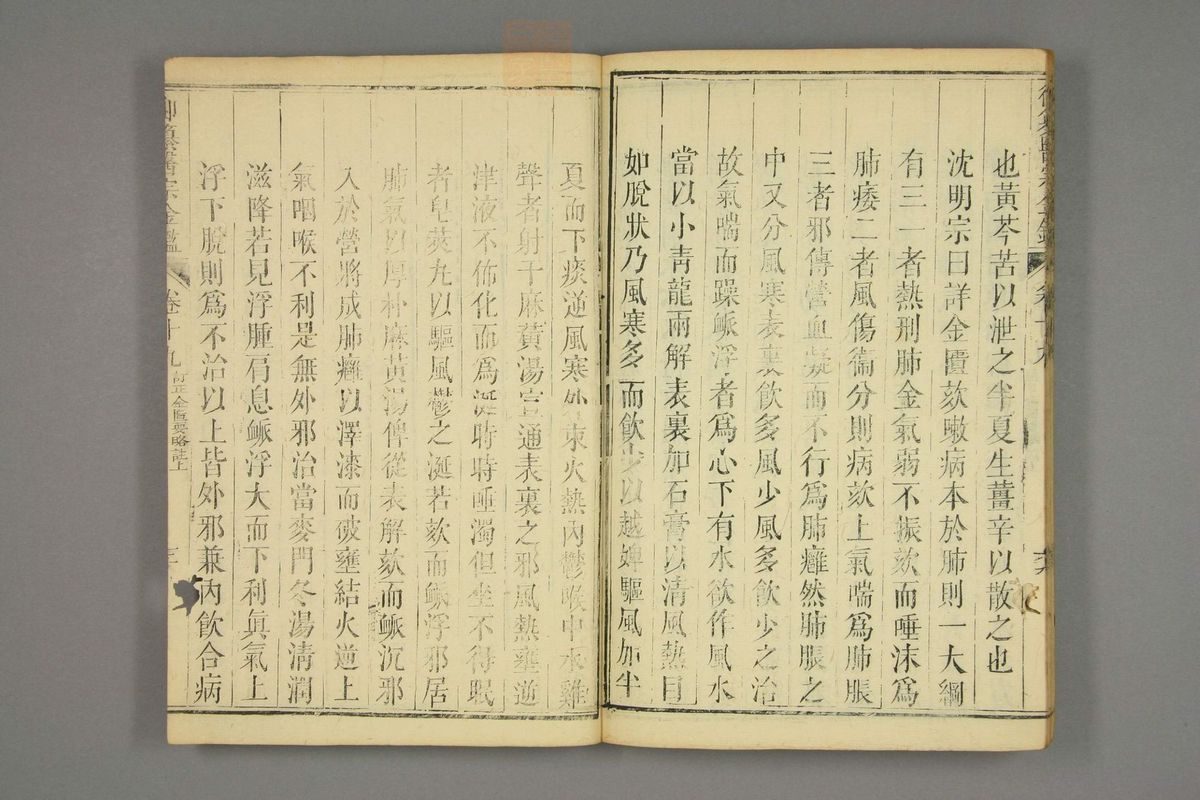 也黃芩苦以泄之半夏生薑辛以散之也
沈明宗曰詳金匱欬嗽病本於肺則一大綱
有三一者熱刑肺金氣弱不振欬而唾沫為
肺痿二者風傷衞分則病欬上氣喘為肺脹
三者邪傳營血凝而不行為肺癰然肺脹之
中又分風寒表裏飲多風少風多飲少之治
故氣喘而躁脈浮者為心下有水欲作風水
當以小青龍兩解表裏加石膏以清風熱目
如脫狀乃風寒多而飲少以越婢驅風加半
夏而下痰逆風寒外束火熱內鬱喉中水雞
聲者射干麻黃湯宣通表裏之邪風熱壅逆
津液不佈化而為涎時時唾濁但坐不得眠
者皂莢丸以驅風鬱之涎若欬而脈浮邪居
肺氣以厚朴麻黃湯俾從表解欬而脈沉邪
入於營將成肺癰以澤漆而破壅結火逆上
氣咽喉不利是無外邪治當麥門冬湯清潤
滋降若見浮腫肩息脈浮大而下利眞氣上
浮下脫則為不治以上皆外邪兼內飲合病
御纂醫宗金鑑 卷十九 訂正金匱要略註上